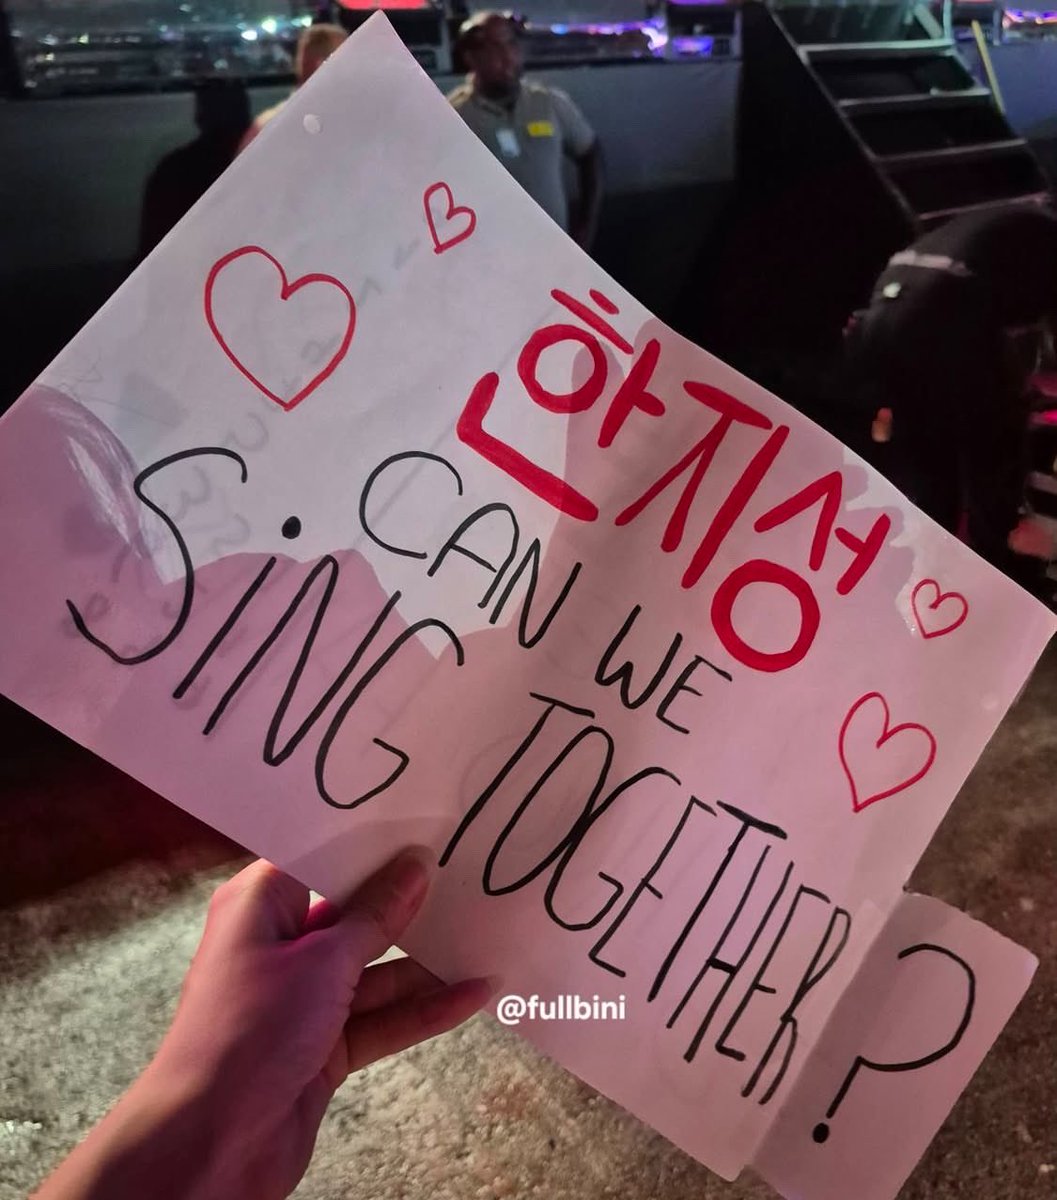 한지성
CAN WE
SiNG TOGETHER?
@fullbini